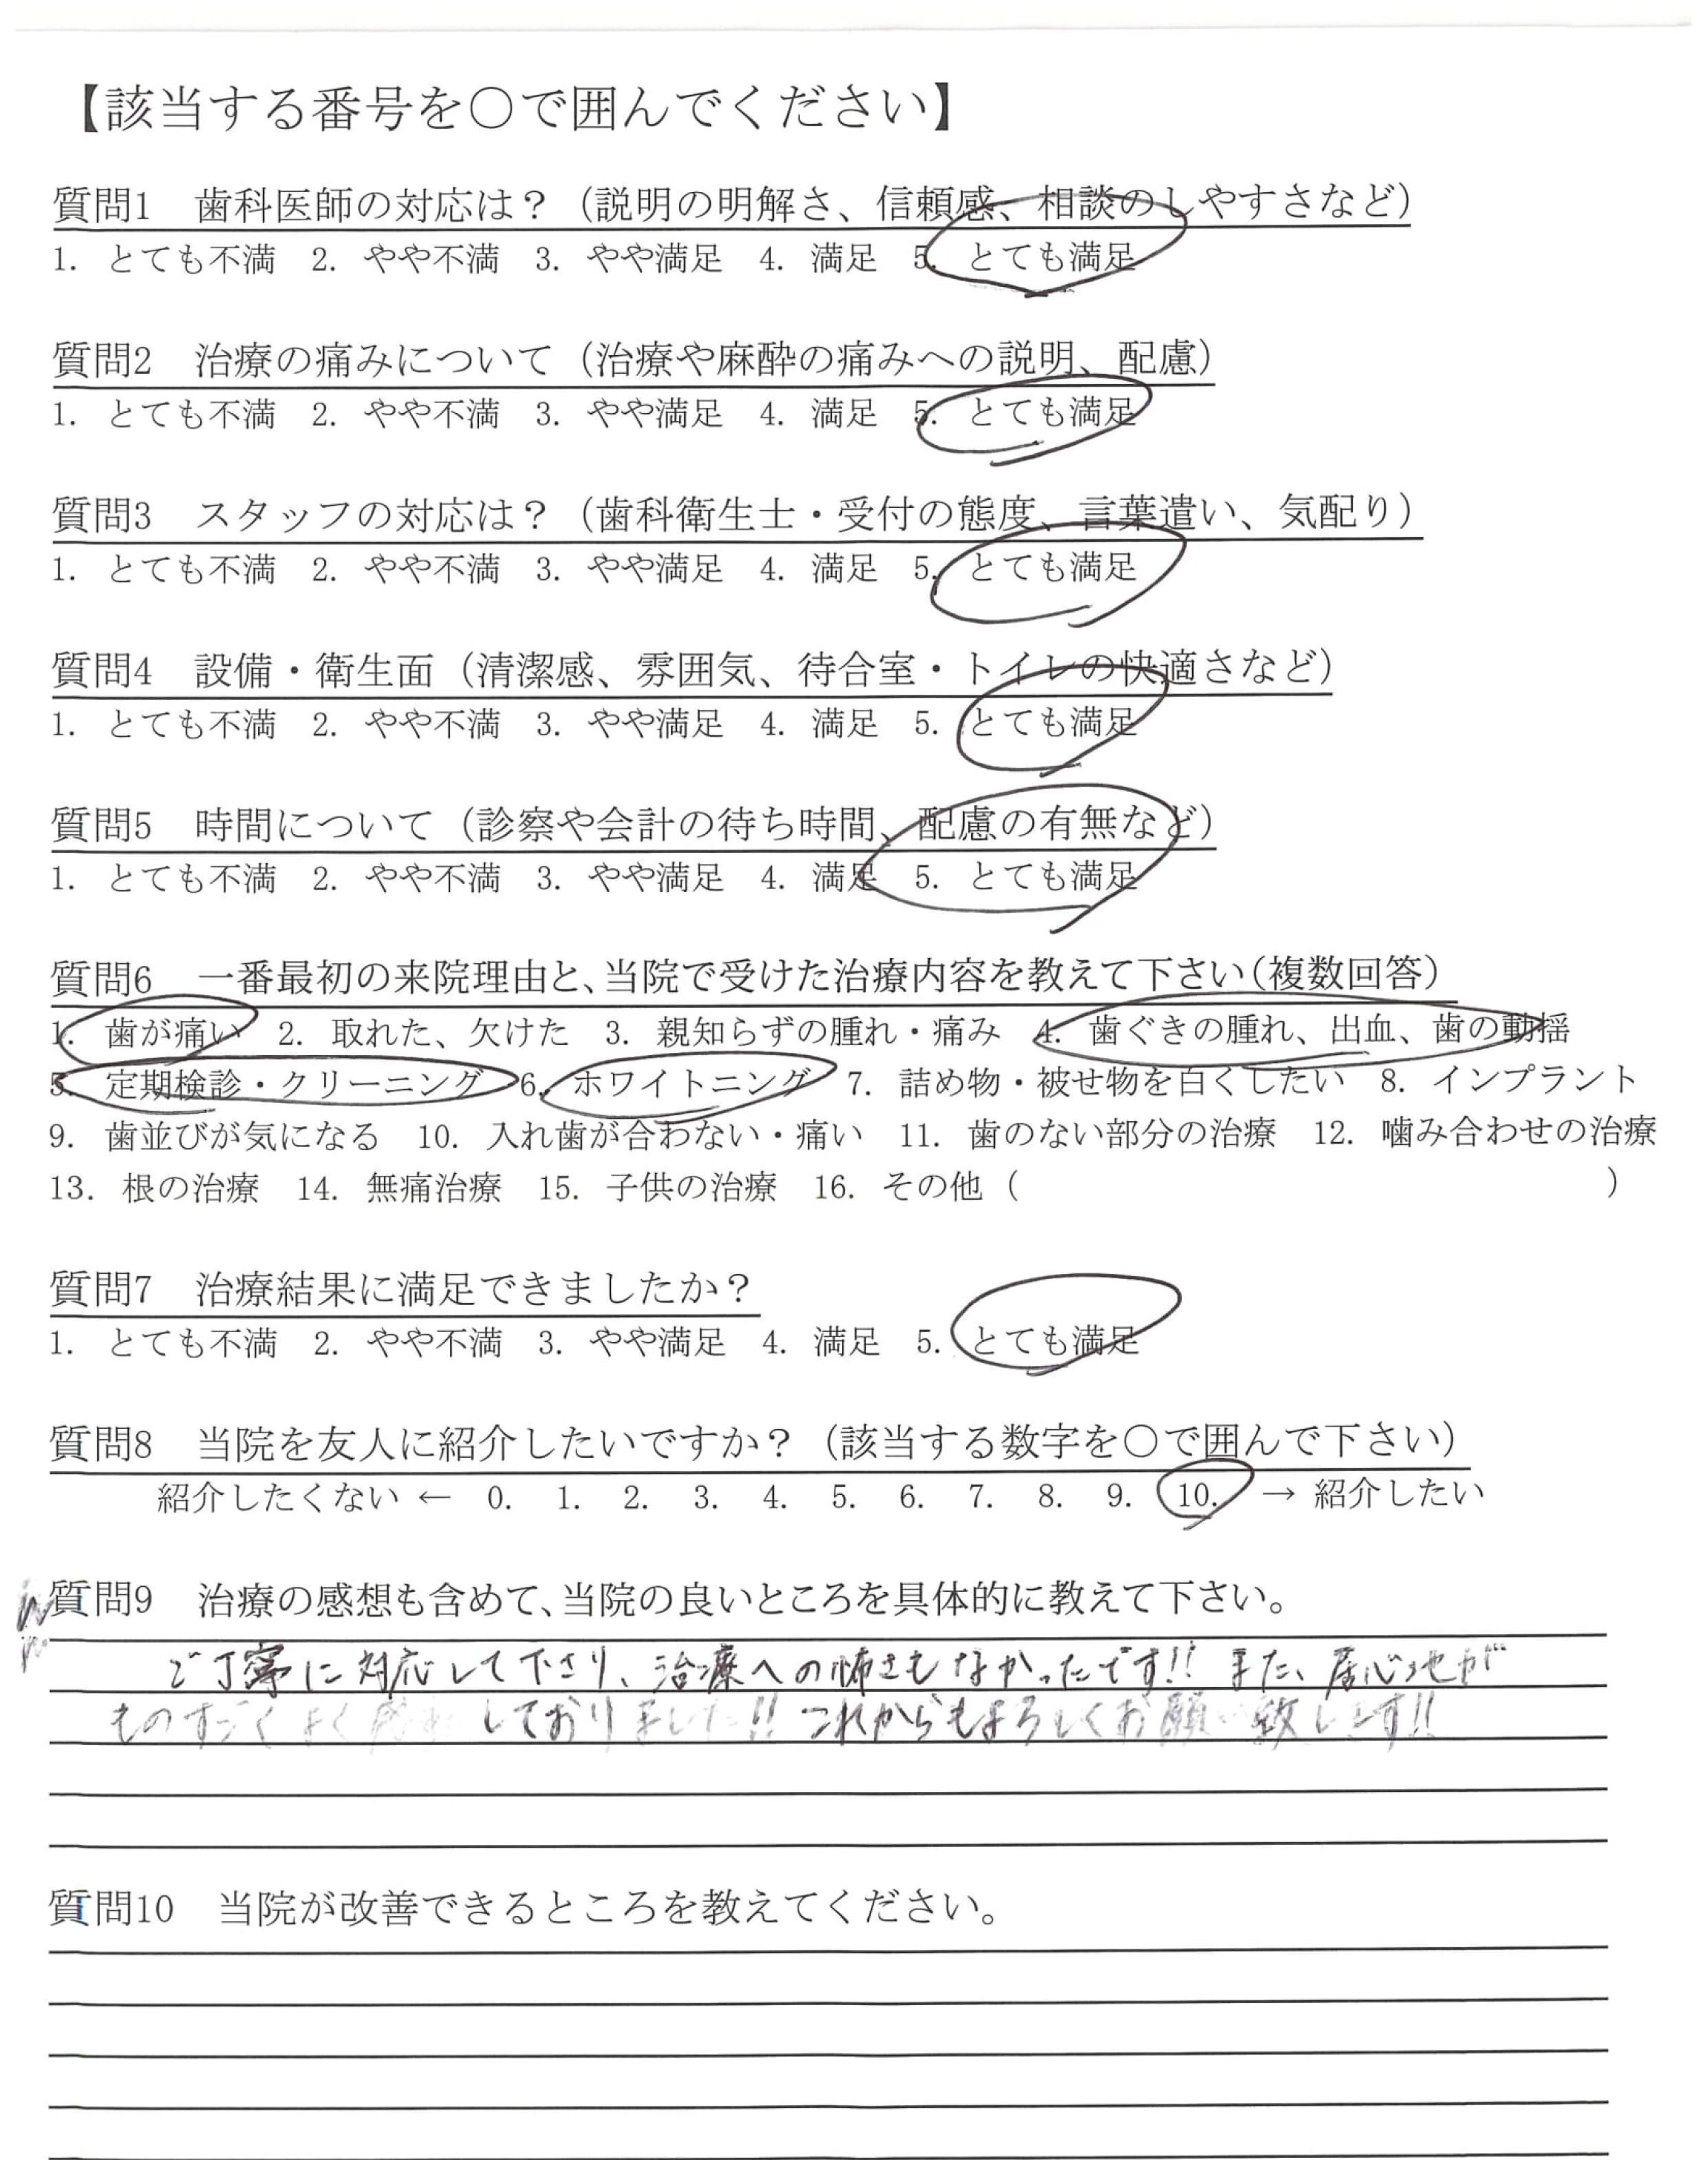 【該当する番号を〇で囲んでください】
質問1 歯科医師の対応は？（説明の明解さ、信頼感、相談のしやすさなど）
1. とても不満 2. やや不満 3. やや満足 4. 満足 5. とても満足
質問2 治療の痛みについて（治療や麻酔の痛みへの説明、配慮）
1. とても不満 2. やや不満 3. やや満足 4. 満足 5. とても満足
質問3 スタッフの対応は？（歯科衛生士・受付の態度、言葉遣い、気配り）
1. とても不満 2. やや不満 3. やや満足 4. 満足 5. とても満足
質問4 設備・衛生面（清潔感、雰囲気、待合室・トイレの快適さなど）
1. とても不満 2. やや不満 3. やや満足 4. 満足 5. とても満足
質問5 時間について（診察や会計の待ち時間、配慮の有無など）
1. とても不満 2. やや不満 3. やや満足 4. 満足 5. とても満足
質問6 一番最初の来院理由と、当院で受けた治療内容を教えて下さい（複数回答）
1. 歯が痛い 2. 取れた、欠けた 3. 親知らずの腫れ・痛み 4. 歯ぐきの腫れ、出血、歯の動揺
5. 定期検診・クリーニング 6. ホワイトニング 7. 詰め物・被せ物を白くしたい 8. インプラント
9. 歯並びが気になる 10. 入れ歯が合わない・痛い 11. 歯のない部分の治療 12. 噛み合わせの治療
13. 根の治療 14. 無痛治療 15. 子供の治療 16. その他（ ）
質問7 治療結果に満足できましたか？
1. とても不満 2. やや不満 3. やや満足 4. 満足 5. とても満足
質問8 当院を友人に紹介したいですか？（該当する数字を〇で囲んで下さい）
紹介したくない ← 0. 1. 2. 3. 4. 5. 6. 7. 8. 9. 10. → 紹介したい
質問9 治療の感想も含めて、当院の良いところを具体的に教えて下さい。
ご丁寧に対応して下さり、治療への怖さもなかったです!! また、居心地が
ものすごくよく しておりました!! これからもよろしくお願い致します!!
質問10 当院が改善できるところを教えてください。